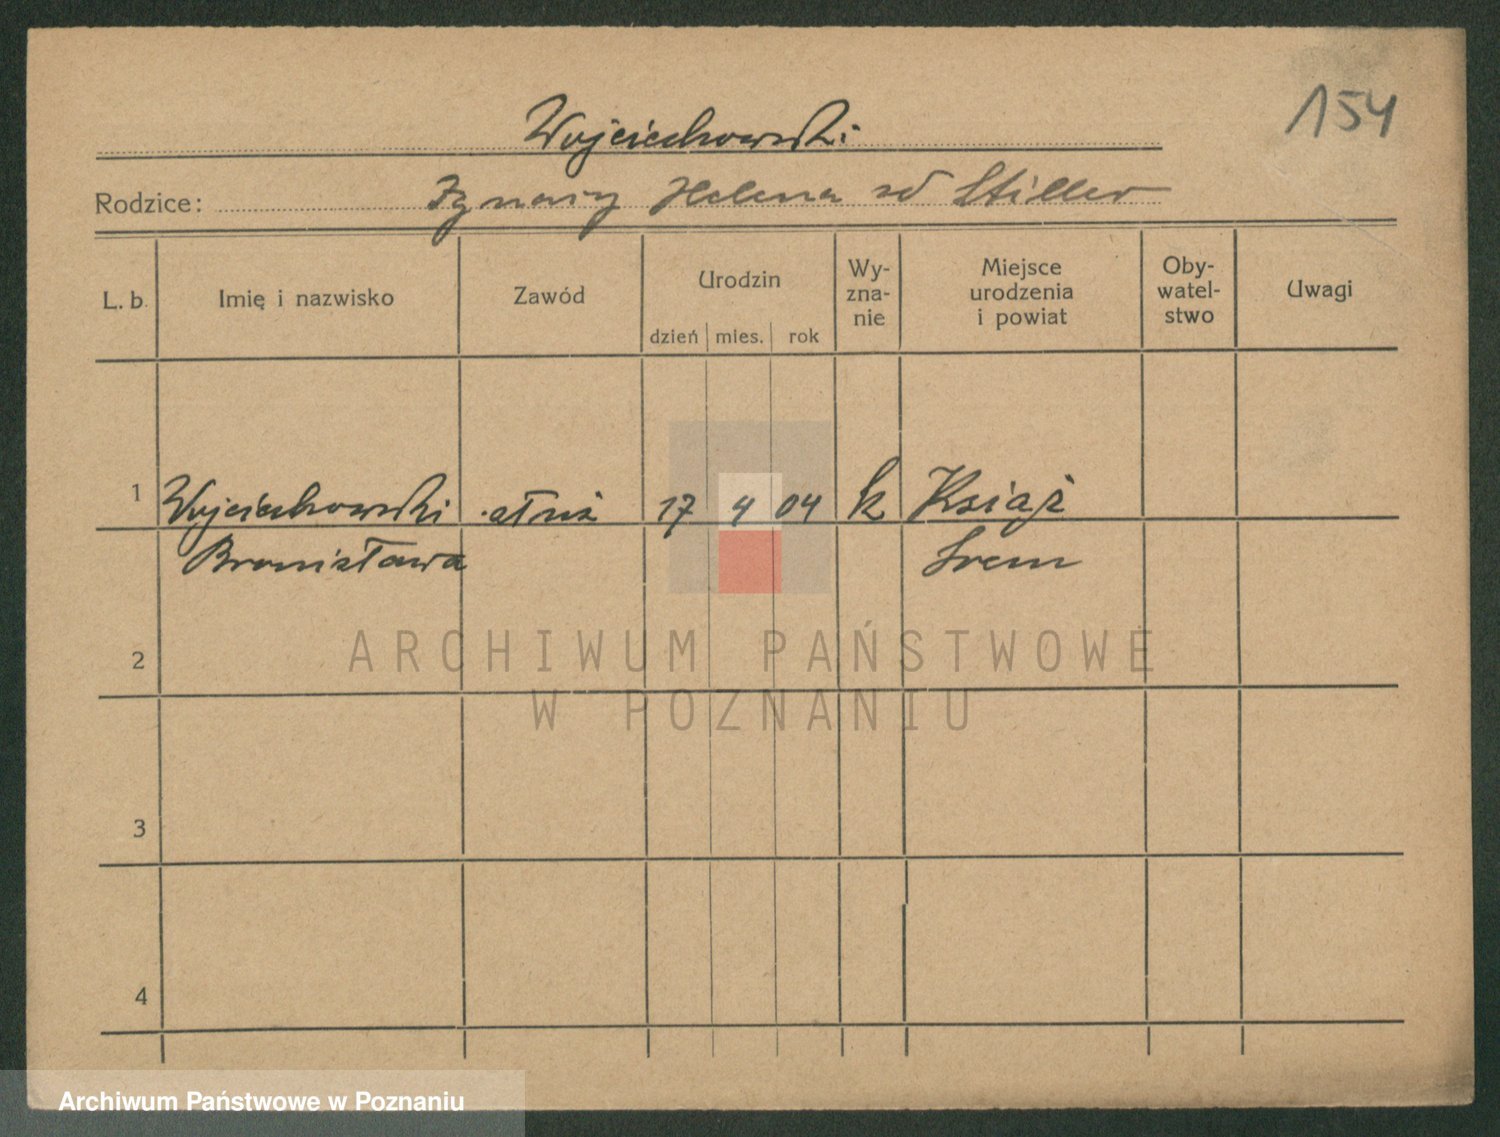 154
Wojciechowski
Rodzice: Ignacy Helena zd Stiller
L. b. Imię i nazwisko Zawód Urodzin Wy-zna-nie Miejsce urodzenia i powiat Oby-watel-stwo Uwagi
dzień mies. rok
1 Wojciechowski służ 17 4 04 k Książ
Bronisława Srem
2
3
4
ARCHIWUM PAŃSTWOWE
W POZNANIU
Archiwum Państwowe w Poznaniu